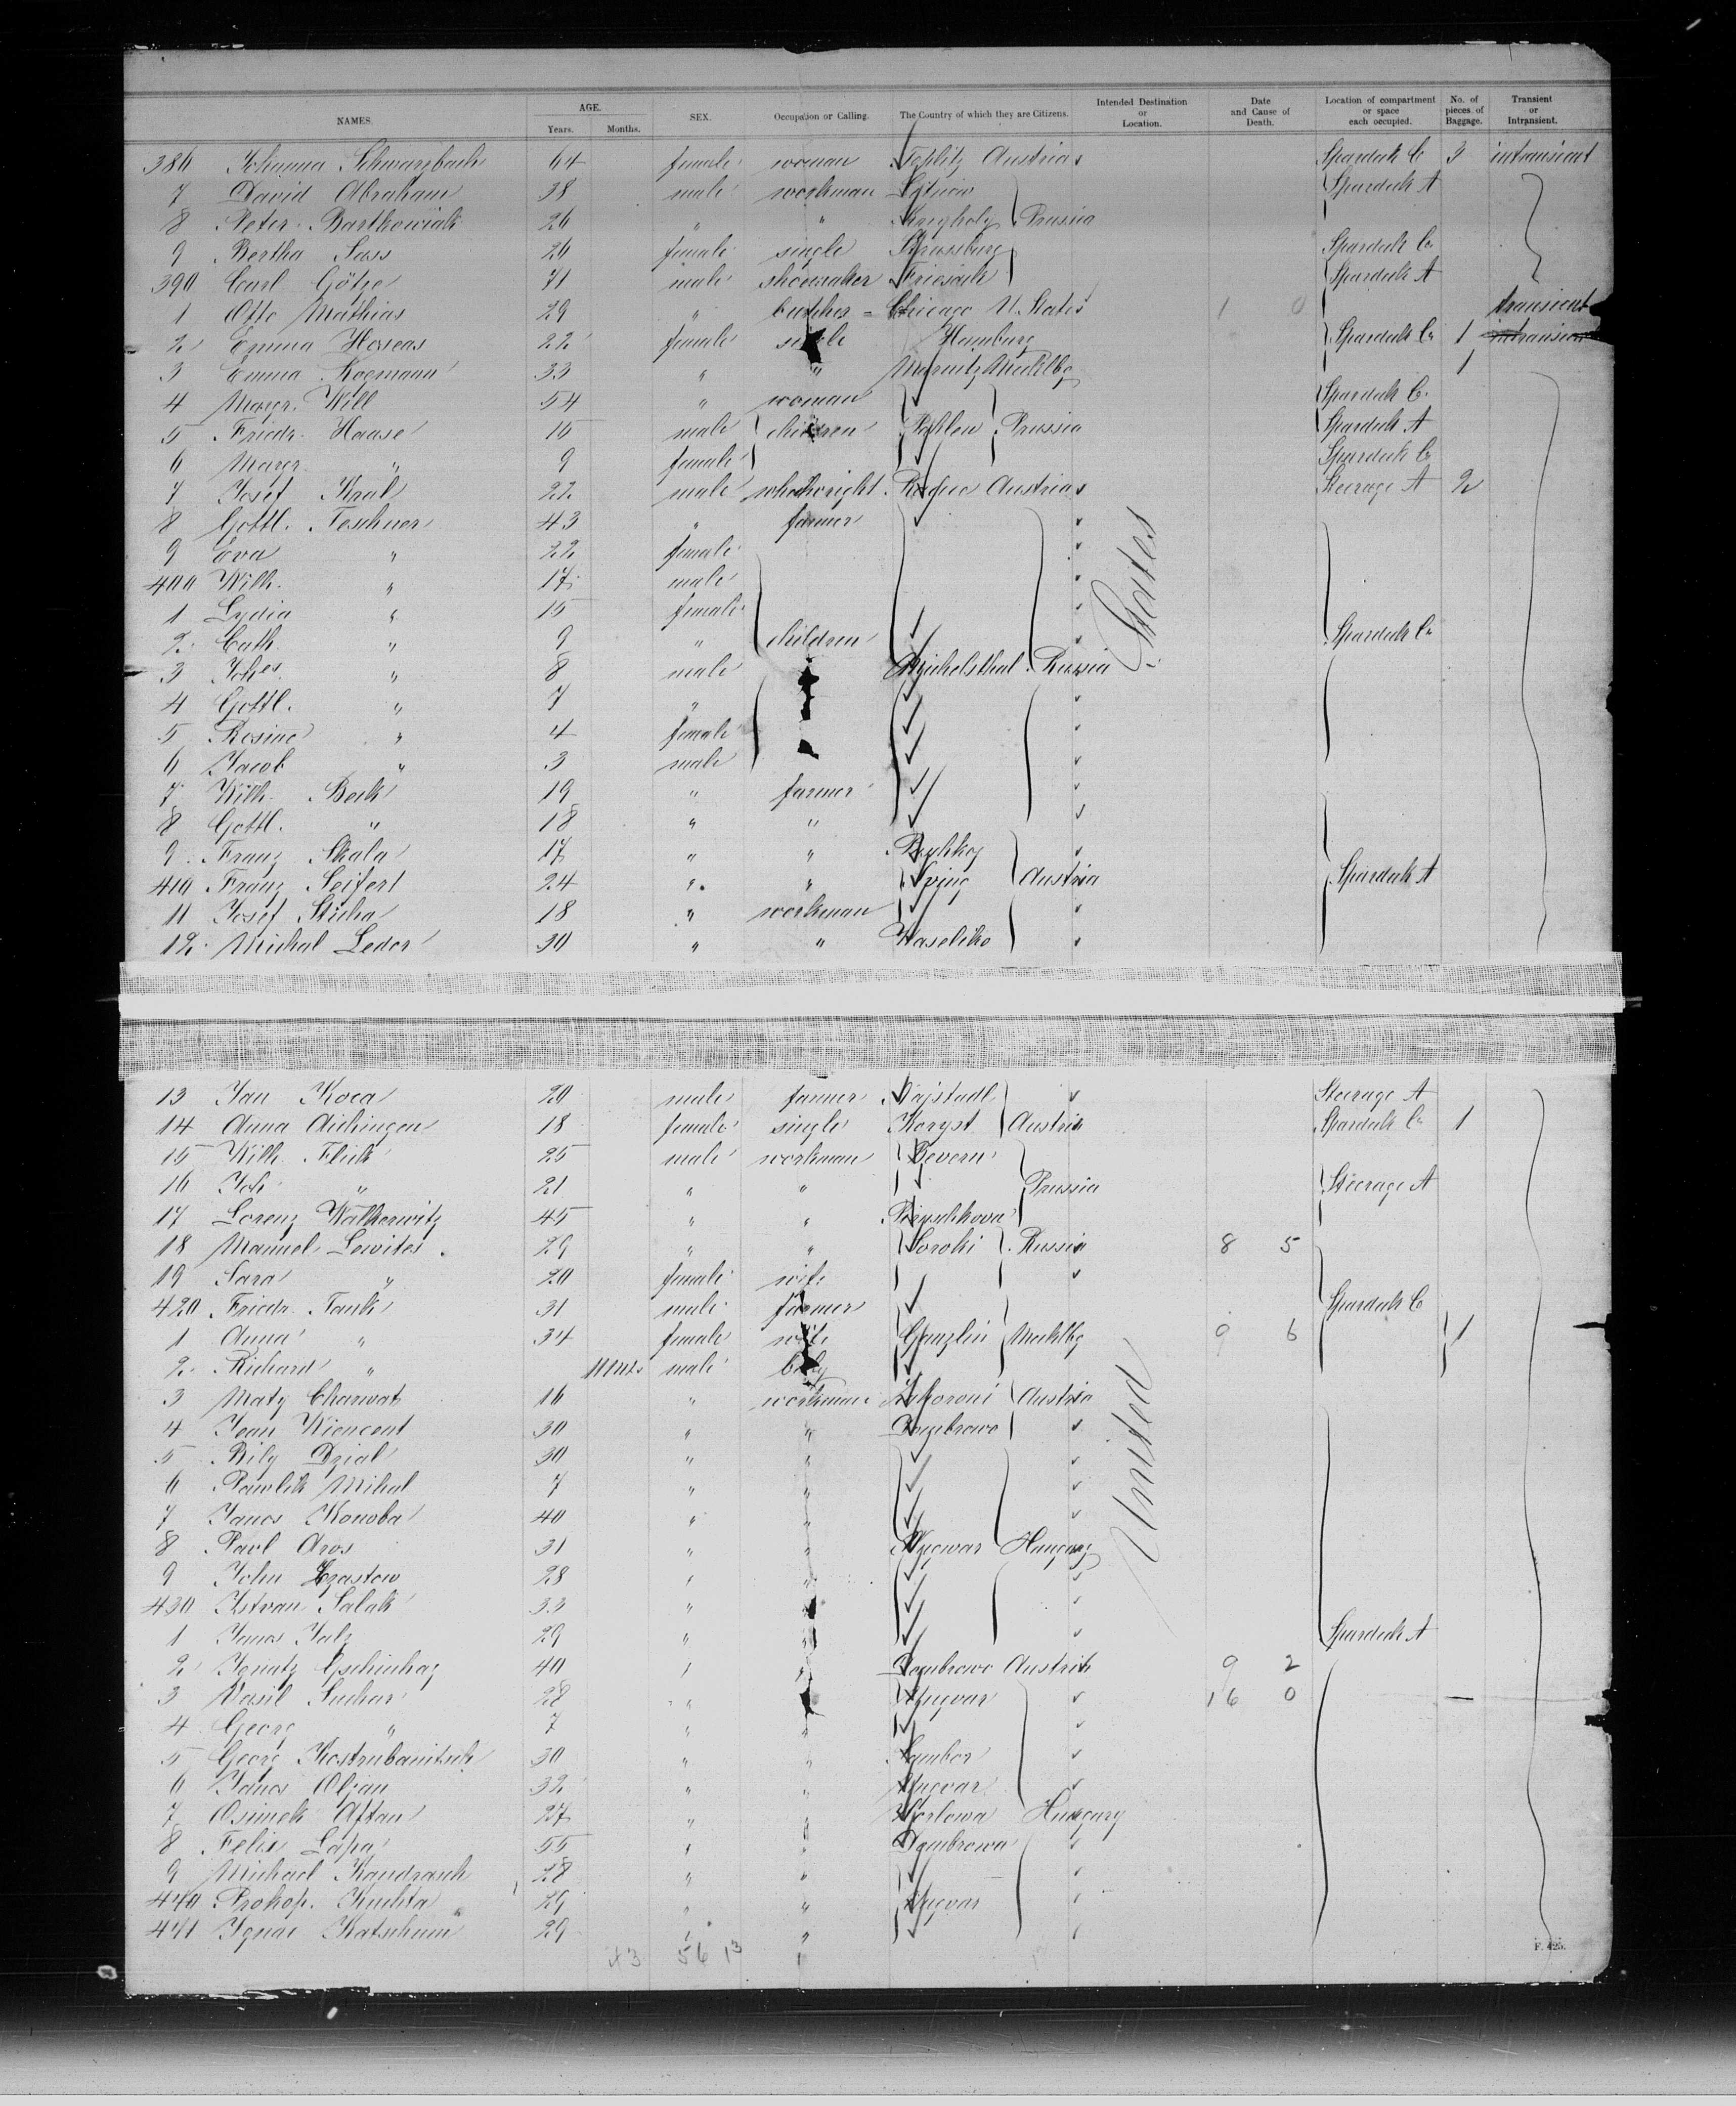 NAMES. AGE. Years. Months. SEX. Occupation or Calling. The Country of which they are Citizens. Intended Destination or Location. Date and Cause of Death. Location of compartment or space each occupied. No. of pieces of Baggage. Transient or Intransient.
386 Johanna Schwarzbach 64 female woman Teplitz Austria Spardeck C 3 intransient
7 David Abraham 38 male workman Prussia Spardeck A
8 Peter Bartkowiak 26 " "
9 Bertha Sass 26 female single Strassburg Spardeck C
390 Carl Götze 71 male shoemaker Friesack Spardeck A
1 Otto Mathias 29 " butcher Chicago U. States 1 0 transient
2 Emma Hoseas 22 female single Hamburg Spardeck C 1 intransient
3 Emma Kogmann 33 " " Mecklbg 1
4 Margr. Will 54 " woman Spardeck C
5 Friedr. Haase 15 male children Pahlen Prussia Spardeck A
6 Margr. " 9 female Spardeck C
7 Josef Kral 22 male wheelwright Austria Steerage A 2
8 Gottl. Teschner 43 " farmer
9 Eva " 22 female
400 Wilh. " 17 male
1 Lydia " 15 female
2 Cath. " 9 " children Spardeck C
3 Johs. " 8 male Michelsthal Russia
4 Gottl. " 7 "
5 Rosine " 4 female
6 Jacob " 3 male
7 Wilh. Beck 19 " farmer
8 Gottl. " 18 " "
9 Franz Skala 17 " "
410 Franz Seifert 24 " " Austria Spardeck A
11 Josef Sticha 18 " workman
12 Michal Leder 30 " " Waseliko
States
13 Jan Koca 20 male farmer Steerage A
14 Anna Aichinger 18 female single Austria Spardeck C 1
15 Wilh. Flick 25 male workman Bevern
16 Joh. " 21 " " Prussia Steerage A
17 Lorenz Walkerwitz 45 " "
18 Manuel Lewites 29 " " Soroki Russia 8 5
19 Sara " 20 female wife
420 Friedr. Tank 31 male farmer Spardeck C
1 Anna " 34 female wife Ganzlin Mecklbg 9 6 1
2 Richard " 11 mts male baby
3 Maty Charwat 16 " workman Austria
4 Jean Wiencent 30 " " Dombrowo
5 Bily Dzial 30 " "
6 Pawlik Mihal 7 " "
7 Janos Konoba 40 " "
8 Pavl Aros 31 " " Hungary
9 John 28 " "
430 Istvan Salak 33 " "
1 Janos 29 " " Spardeck A
2 Ignatz 40 " " Dombrowo Austria 9 2
3 Vasil Suchar 28 " " Ungvar 16 0
4 Georg " 7 " "
5 Georg Kostrubanitsch 30 " " Sambor
6 Janos 32 " " Ungvar
7 Osimek Aftan 27 " " Hungary
8 Felix Lapa 55 " " Dombrowa
9 Michael Kandrasch 28 " "
440 Prokop. Kuchta 29 " " Ungvar
441 Ignac Katschum 29 " "
United
43 56 13
F. 425.